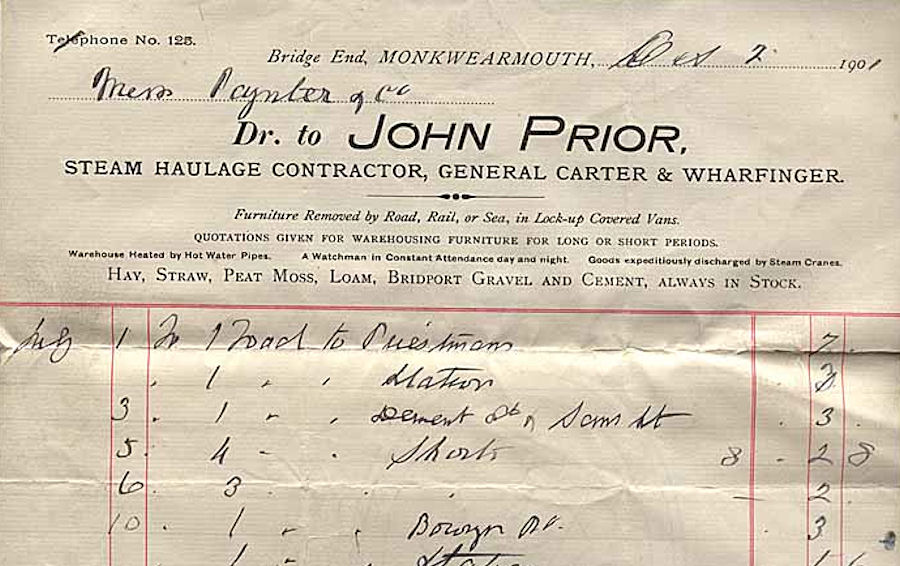 Telephone No. 125.
Bridge End, MONKWEARMOUTH, Oct 2 1901
Mess Paynter & Co
Dr. to JOHN PRIOR,
STEAM HAULAGE CONTRACTOR, GENERAL CARTER & WHARFINGER.
Furniture Removed by Road, Rail, or Sea, in Lock-up Covered Vans.
QUOTATIONS GIVEN FOR WAREHOUSING FURNITURE FOR LONG OR SHORT PERIODS.
Warehouse Heated by Hot Water Pipes. A Watchman in Constant Attendance day and night. Goods expeditiously discharged by Steam Cranes.
HAY, STRAW, PEAT MOSS, LOAM, BRIDPORT GRAVEL AND CEMENT, ALWAYS IN STOCK.
July 1 To 1 Load to Priestmans 7
1 " " Station 3
3 . 1 " " & Sans St 3
5 . 4 " " 8 - 2 8
6 3 " " — 2
10 . 1 " " 3
1 " "